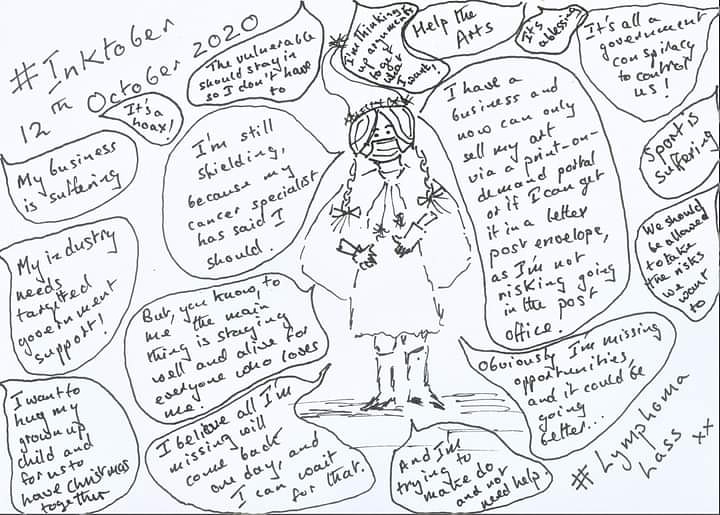 #Inktober
12th October 2020
The vulnerable
should stay in
so I don't have
to
I'm thinking
up arguments
to get
what
I want!
Help the
Arts
It's
a blessing
It's all a
government
conspiracy
to control
us!
It's a
hoax!
My business
is suffering
I'm still
shielding,
because my
cancer specialist
has said I
should.
I have a
business and
now can only
sell my art
via a print-on-
demand portal
or if I can get
it in a letter
post envelope,
as I'm not
risking going
in the post
office.
Sport is
suffering
My industry
needs
targeted
government
support!
We should
be allowed
to take
the risks
we
want
to
But, you know, to
me the main
thing is staying
well and alive for
everyone who loves
me.
Obviously I'm missing
opportunities,
and it could be
going
better...
I want to
hug my
grown up
child and
for us to
have Christmas
together
I believe all I'm
missing will
come back
one day, and
I can wait
for that.
And I'm
trying to
make do
and not
need help.
#Lymphoma
Lass xx